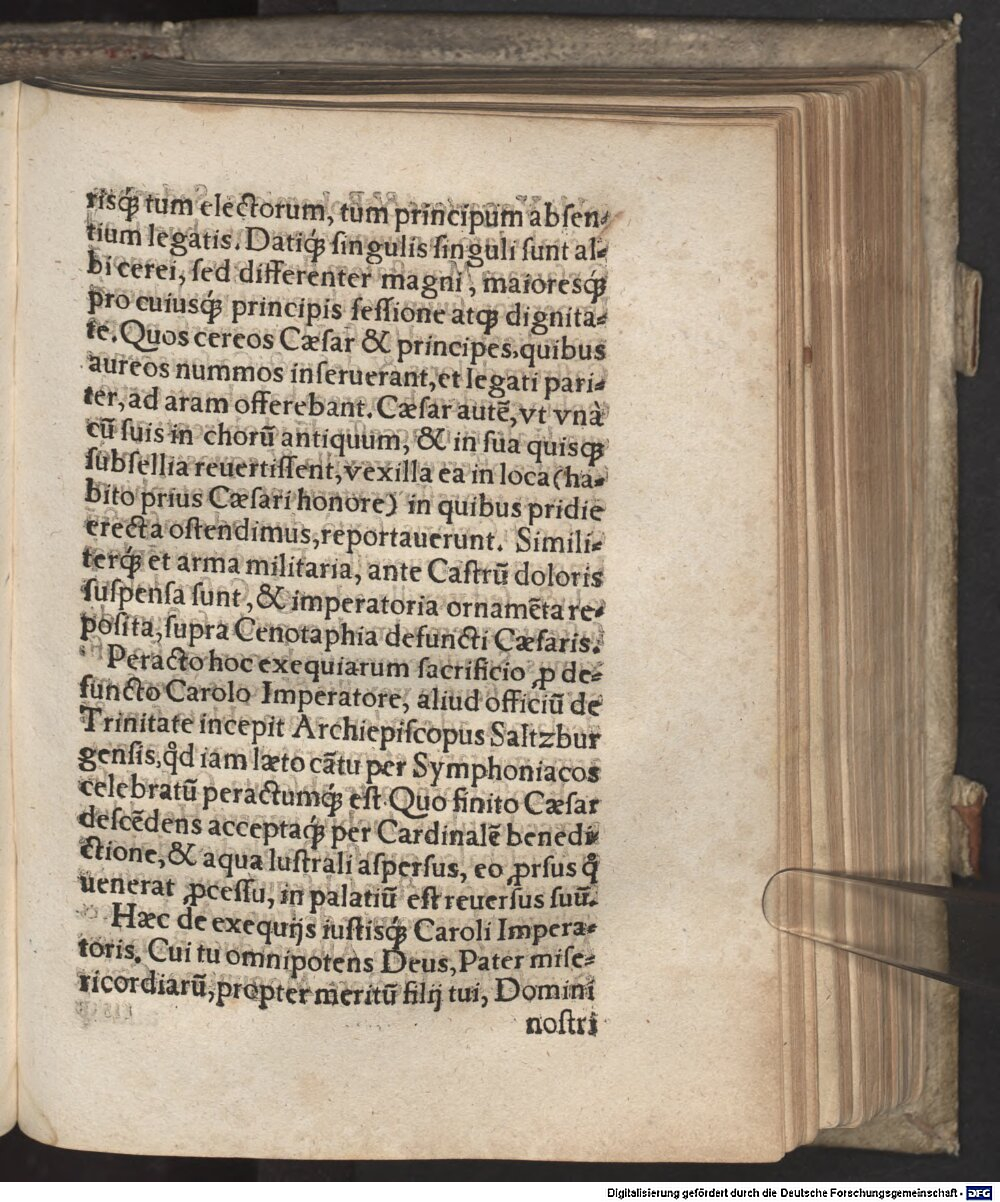 risq́ꝫ tum electorum, tum principum abſen⸗
tium legatis. Datiq́ꝫ ſingulis ſinguli ſunt al⸗
bi cerei, ſed differenter magni, maioresq́ꝫ
pro cuiusq́ꝫ principis ſeſſione atqꝫ dignita⸗
te. Quos cereos Cæſar & principes, quibus
aureos nummos inſeruerant, et legati pari⸗
ter, ad aram offerebant. Cæſar autẽ, vt vnà
cũ ſuis in chorũ antiquum, & in ſua quisqꝫ
ſubſellia reuertiſſent, vexilla ea in loca (ha⸗
bito prius Cæſari honore) in quibus pridie
erecta oſtendimus, reportauerunt. Simili⸗
terq́ꝫ et arma militaria, ante Caſtrũ doloris
ſuſpenſa ſunt, & imperatoria ornamẽta re⸗
poſita, ſupra Cenotaphia defuncti Cæſaris.
Peracto hoc exequiarum ſacrificio ꝓ de⸗
functo Carolo Imperatore, aliud officiũ de
Trinitate incepit Archiepiſcopus Saltzbur
genſis, qd̉ iam læto cãtu per Symphoniacos
celebratũ peractumq́ꝫ eſt. Quo finito Cæſar
deſcẽdens acceptaq́ꝫ per Cardinalẽ benedi⸗
ctione, & aqua luſtrali aſperſus, eo ꝓrſus q̊
uenerat ꝓceſſu, in palatiũ eſt reuerſus ſuũ.
Hæc de exequijs iuſtisq́ꝫ Caroli Impera⸗
toris. Cui tu omnipotens Deus, Pater miſe⸗
ricordiarũ, propter meritũ filij tui, Domini
noſtri
Digitalisierung gefördert durch die Deutsche Forschungsgemeinschaft - DFG